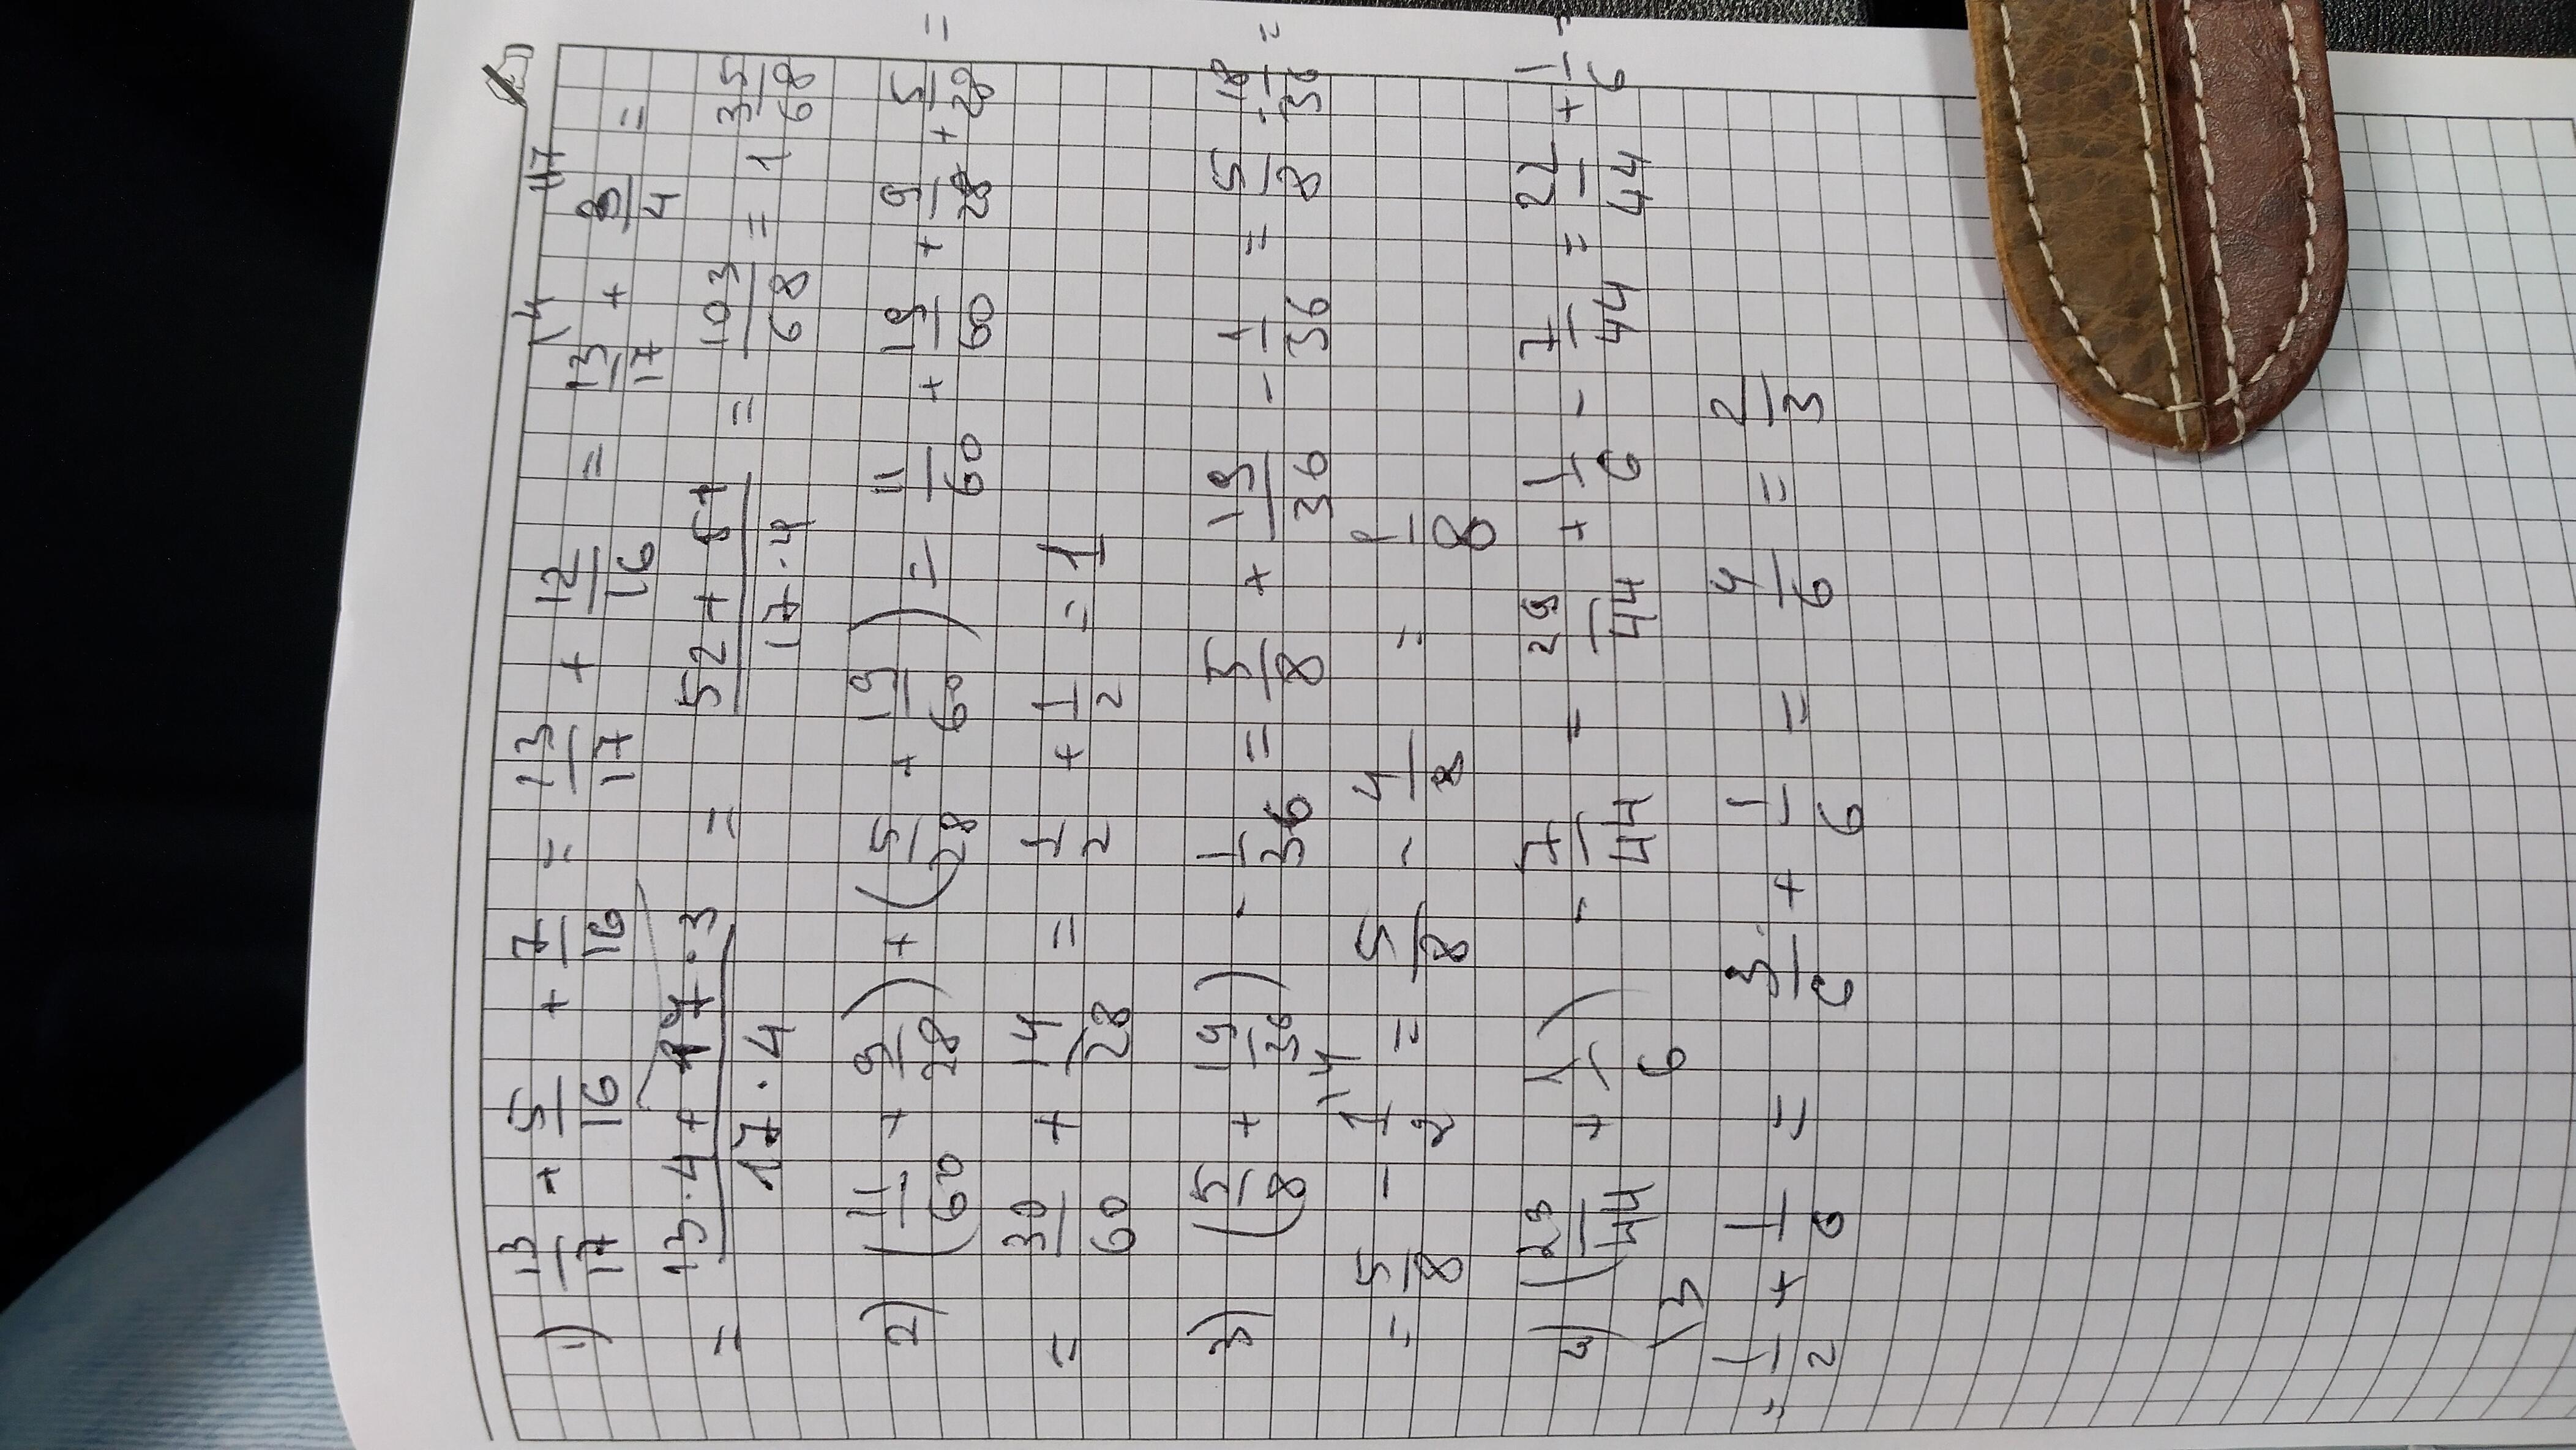 1) 13/17 + 5/16 + 7/16 = 13/17 + 12/16 = 13/17 \4 + 3/4 \17 =
= (13·4 + 17·3)/(17·4) = (52 + 51)/(17·4) = 103/68 = 1 35/68
2) (11/60 + 9/28) + (5/28 + 19/60) = 11/60 + 19/60 + 9/28 + 5/28 =
= 30/60 + 14/28 = 1/2 + 1/2 = 1
3) (5/8 + 19/36) - 1/36 = 5/8 + 19/36 - 1/36 = 5/8 - 18/36 =
= 5/8 - 1/2 \4 = 5/8 - 4/8 = 1/8
4) (29/44 + 1/6) - 7/44 = 29/44 + 1/6 - 7/44 = 22/44 + 1/6 =
= 1/2 \3 + 1/6 = 3/6 + 1/6 = 4/6 = 2/3